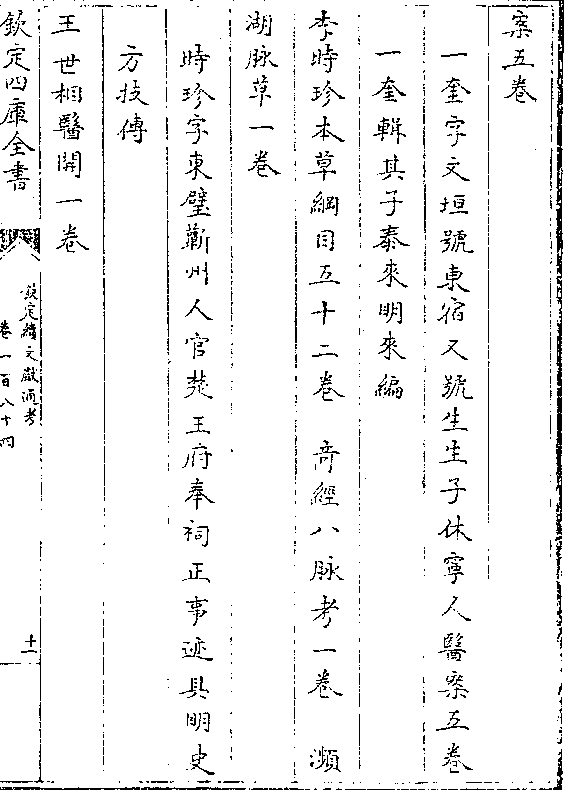 案五卷
一奎字文垣號東宿又號生生子休寧人醫案五卷
一奎輯其子泰來明來編
李時珍本草綱目五十二卷　奇經八脉考一卷　瀕
湖脉草一卷
時珍字東璧蘄州人官楚王府奉祠正事迹具明史
方技傳
王世相醫開一卷
欽定四庫全書
欽定續文獻通考
卷一百八十四
十一